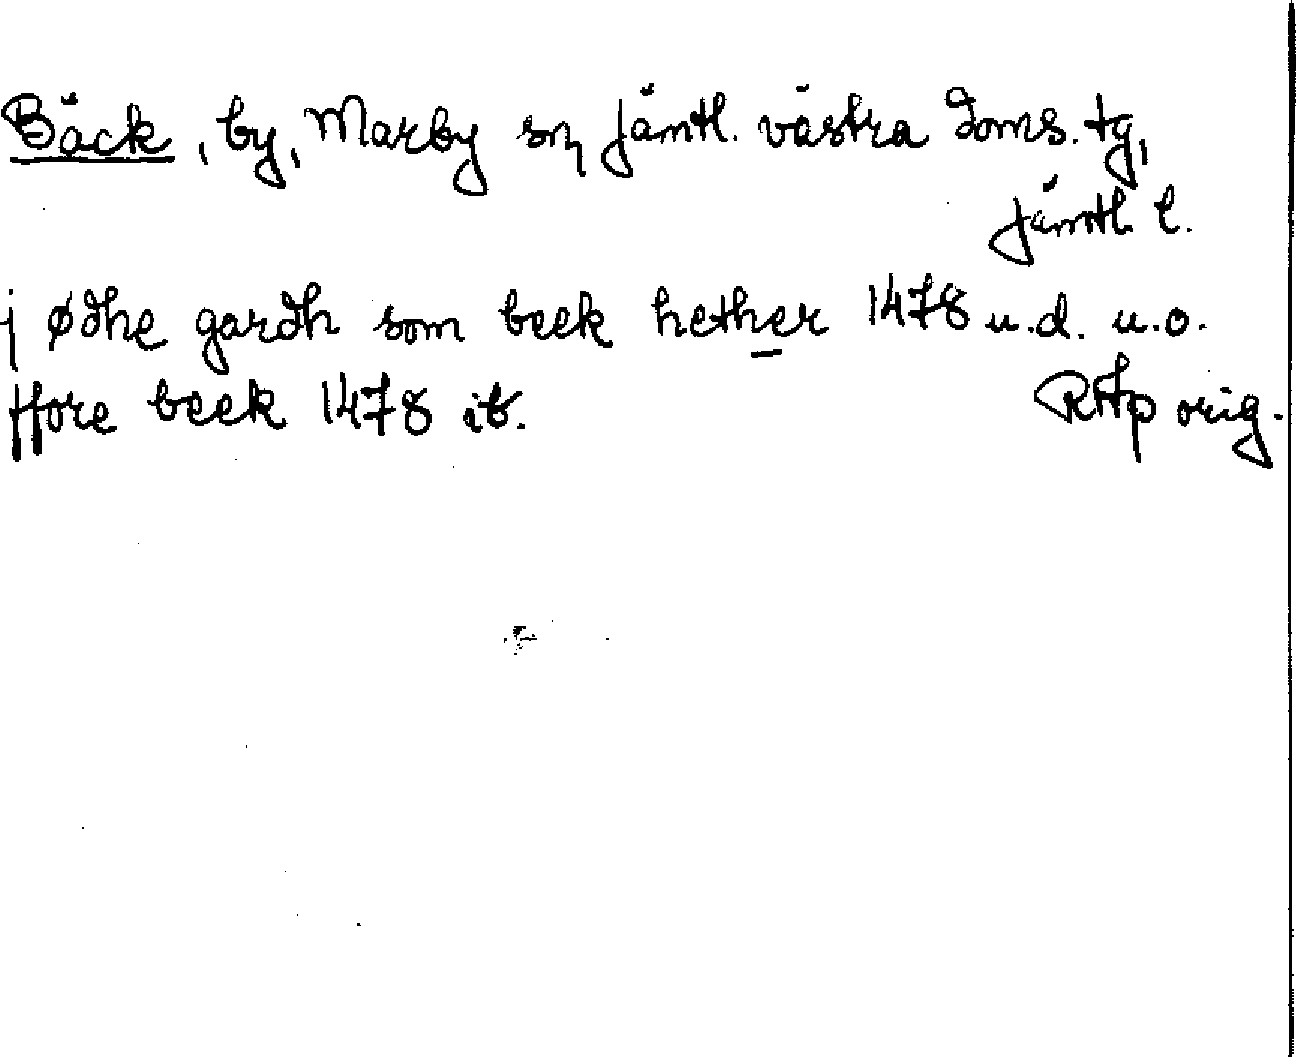 Bäck, by, Marby sn, Jämtl. västra doms. tg,
Jämtl. l.
j ødhe gardh som beek hether 1478 u.d. u.o.
ffore beek 1478 ib. RAp orig.